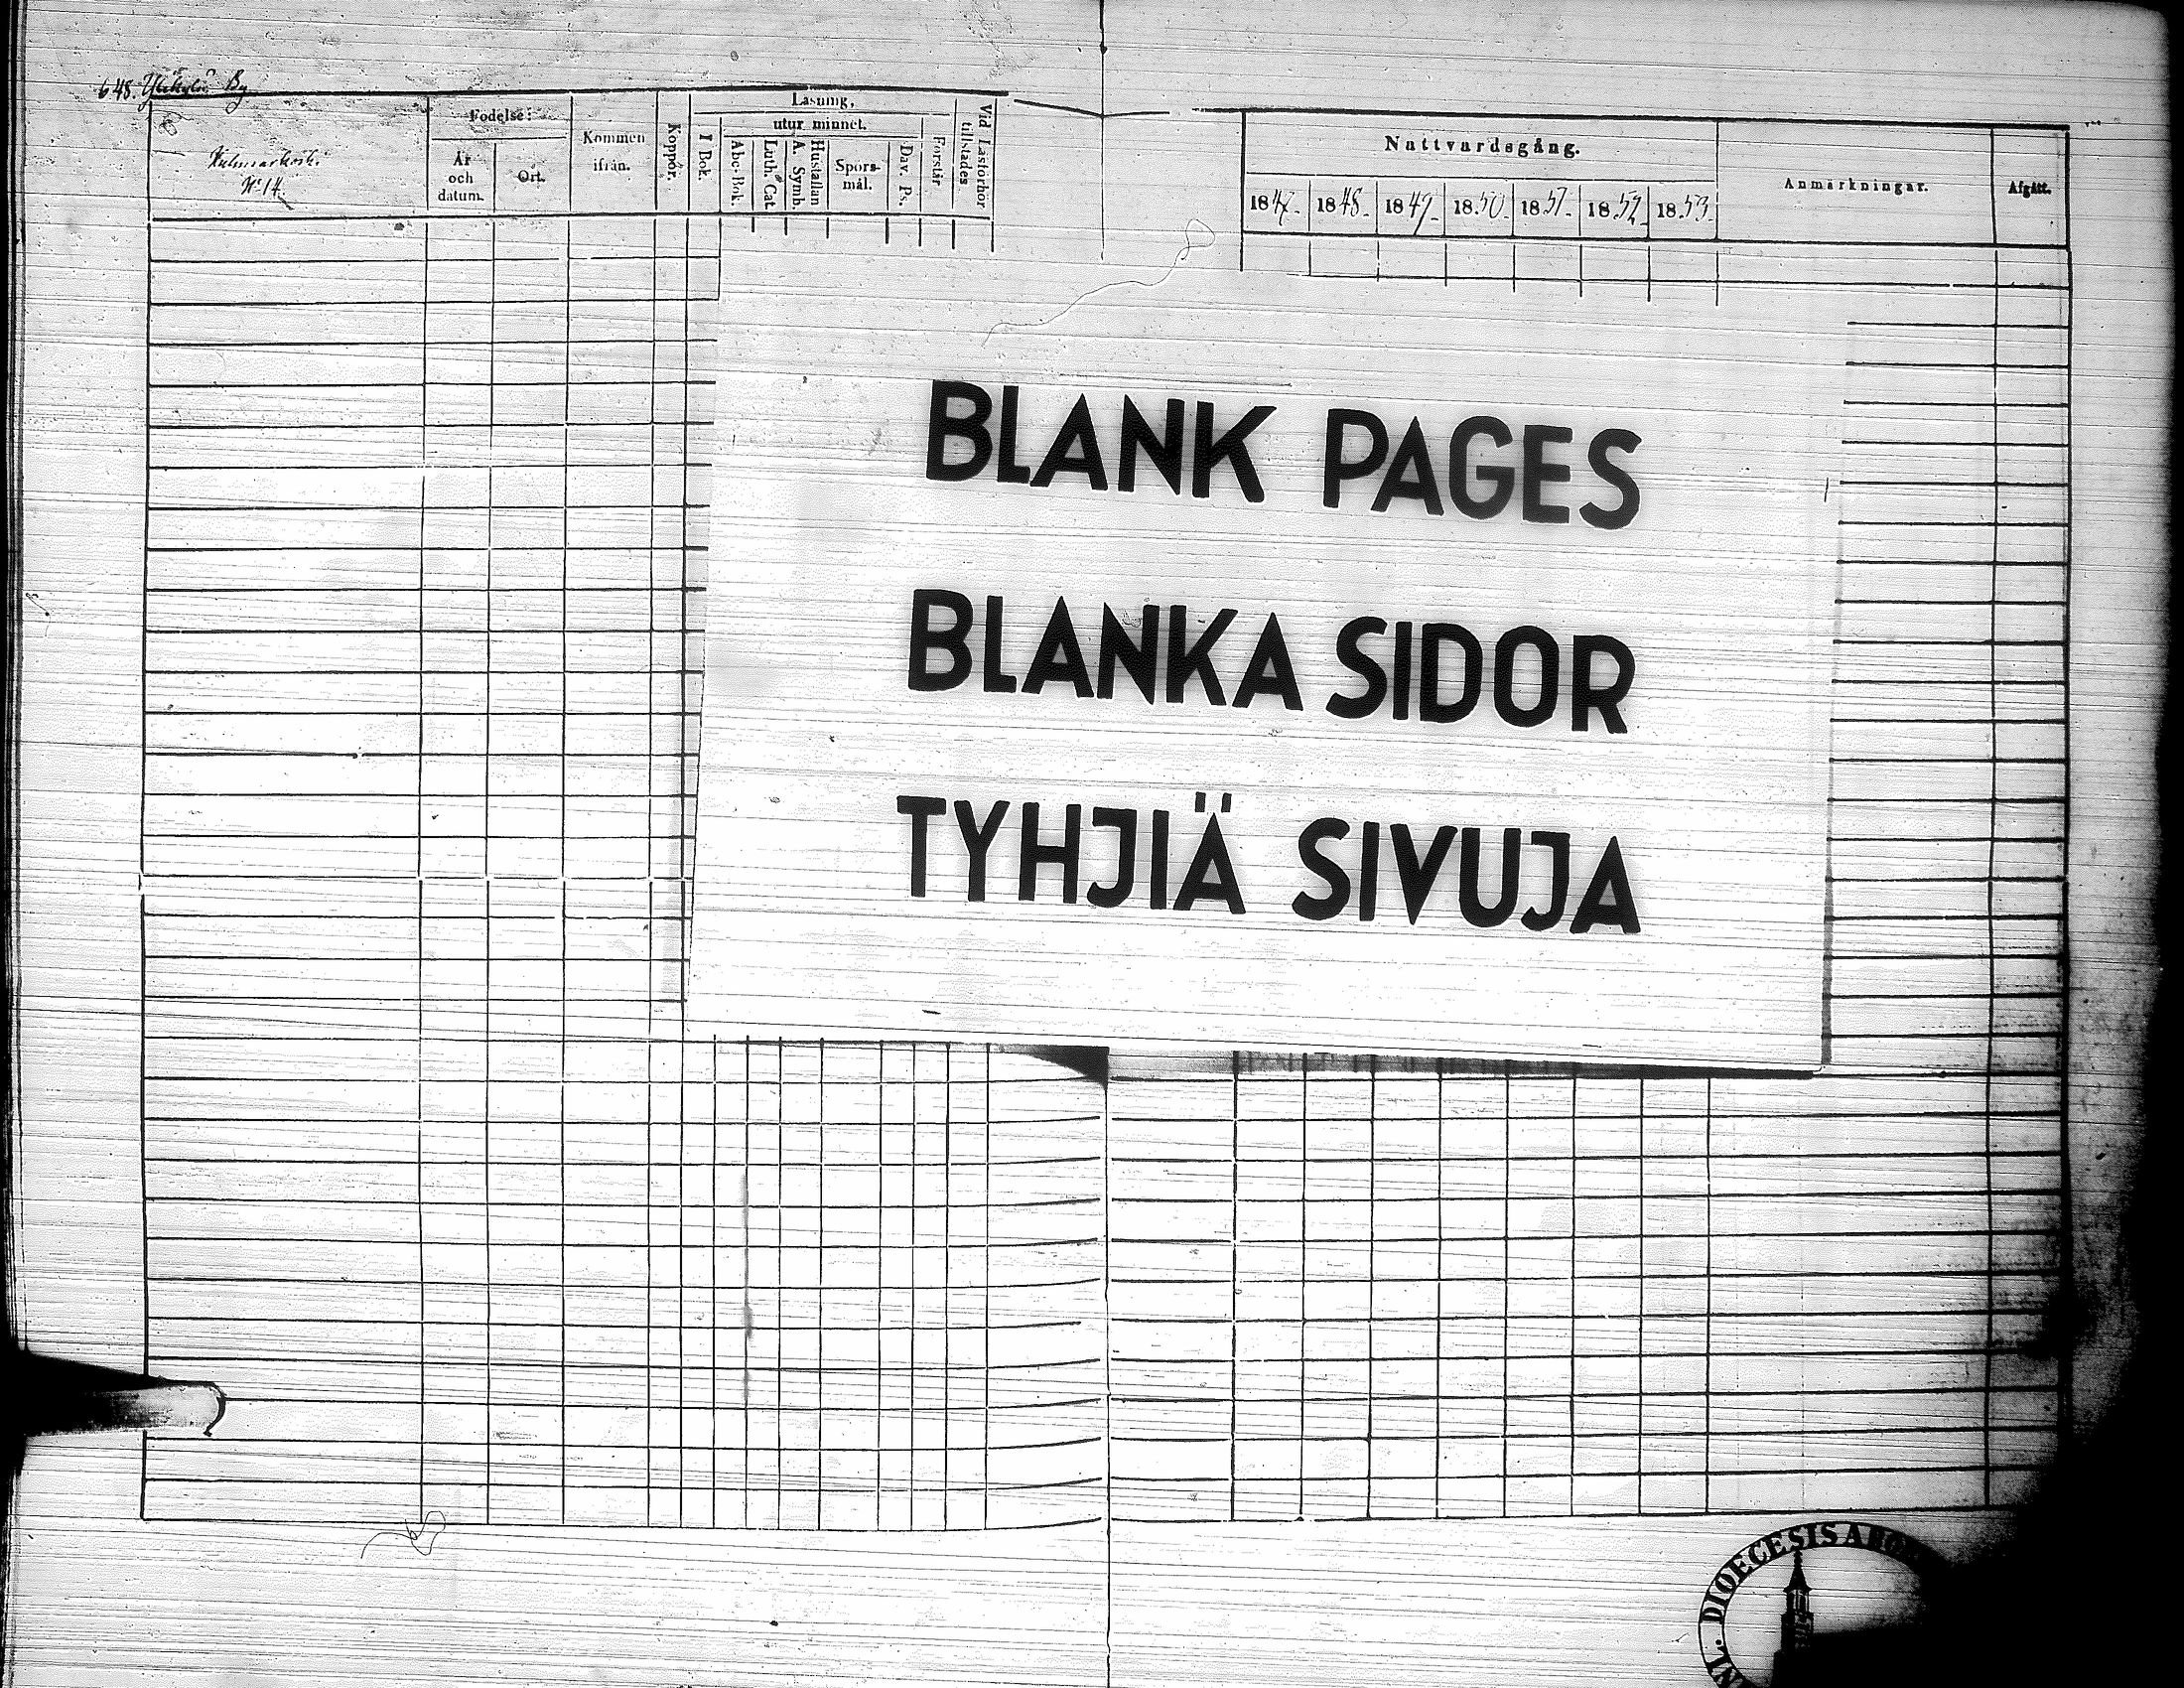 648. By
N:o 14.
Födelse:
År
och
datum.
Ort.
Kommen
ifrån.
Koppor.
Läsning,
I Bok.
utur minnet.
Abc-Bok.
Luth. Cat.
Hustaflan
A. Symb.
Spörs-
mål.
Dav. Ps.
Förstår
Vid Läsförhör
tillstädes
Nattvardsgång.
1847. 1848. 1849. 1850. 1851. 1852. 1853.
Anmärkningar.
Afgått.
BLANK PAGES
BLANKA SIDOR
TYHJIÄ SIVUJA
DIOECESIS